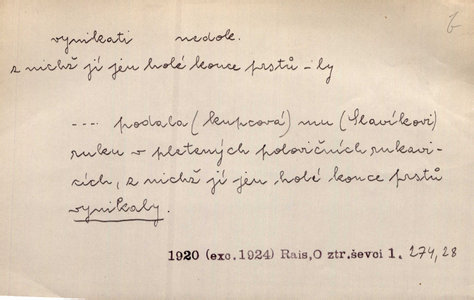 vynikati nedok.
z nichž jí jen holé konce prstů -ly
---- podala (kupcová) mu (Slavíkovi)
ruku v pletených polovičních rukavi-
cích, z nichž jí jen holé konce prstů
vynikaly.
1920 (exc. 1924) Rais, O ztr. ševci 1. 274, 28